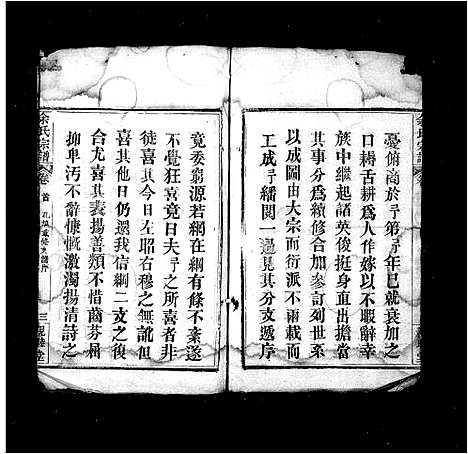 憂俯商於予第予年已就衰加之
口耕舌耕為人作嫁以不暇辭幸
族中繼起諸英俊挺身直出擔當
其事分為續修合加參訂列世系
以成圖由大宗而衍派不兩載
工成予繙閱一過見其分支遞序
竟委窮源若網在綱有條不紊遂
不覺狂喜竟日夫予之所喜者非
徒喜其今日左昭右穆之無訛但
喜其他日仍還我信綱二支之後
合尤喜其表揚善類不惜齒芬屏
抑卑汚不辭慷慨激濁揚清詩之
余氏宗譜
卷
首
三